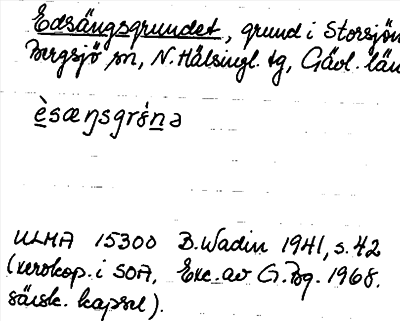 Edsängsgrundet, grund i Storsjön
Bergsjö sn, N. Hälsingl. tg, Gävl. län
èsæŋsgrɤ́nə
ULMA 15300 B. Wadin 1941, s. 42
(xerokop. i SOA, Exc. av G. Bg. 1968.
särsk. kapsel).